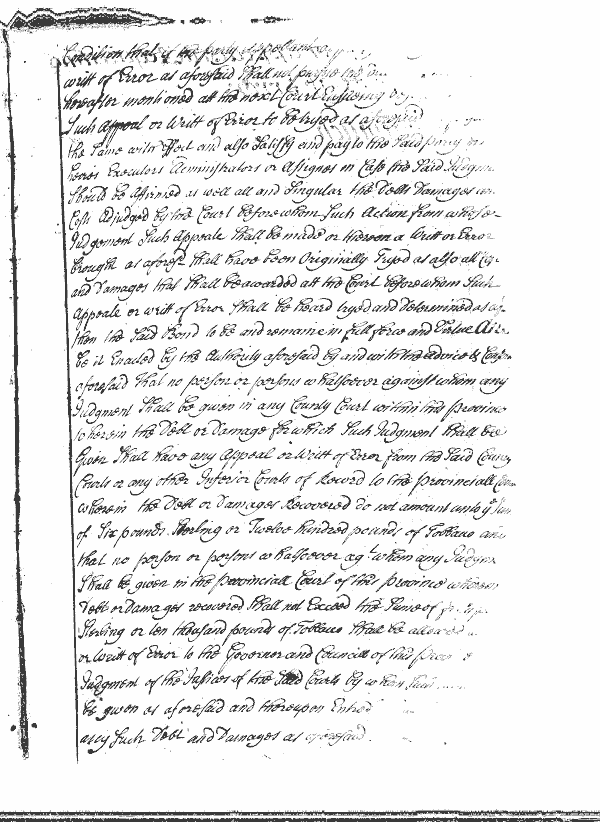 Condition that if the party Appealant
writt of Error as aforesaid Shall not
hereafter mentioned att the next Court Ensueing
Such Appeal or Writt of Error to be tryed as aforesaid
the Same with Effect and also Satisfy and pay to the Said party
heires Executors Administrators or Assignes in Case the Said Judgm
Should be Affirmed as well all and Singular the Debts Damages an
Costs Adjudged by the Court before whom Such Action from whose
Judgement Such Appeale Shall be made or thereon a Writt or Error
brought as afores.d Shall have been Originally Tryed as also all
and Damages that Shall be awarded att the Court before whom Such
Appeale or writt of Error Shall be heard tryed and determined as
then the Said Bond to be and remaine in full force and Virtue And
be it Enacted by the Authority aforesaid by and with the advice &
aforesaid that no person or persons whatsoever against whom any
Judgment Shall be given in any County Court within this Province
wherein the Debt or Damage for which Such Judgment Shall be
Given Shall have any Appeal or Writt of Error from the Said County
Courts or any other Inferior Courts of Record to the Provinciall
wherein the Debt or Damages Recovered do not amount unto ye Sum
of Six pounds Sterling or Twelve hundred pounds of Tobbaco and
that no person or persons whatsoever agt whom any Judgm
Shall be given in the Provinciall Court of this Province wherein
Debt or damages recovered Shall not Exceed the Sume of
Sterling or ten thousand pounds of Tobbaco Shall be allowed
or Writt of Error to the Governor and Councill of this
Judgment of the Justices of the Said Courts by whom
be given as aforesaid and thereupon Entred
any Such Debt and Damages as aforesaid